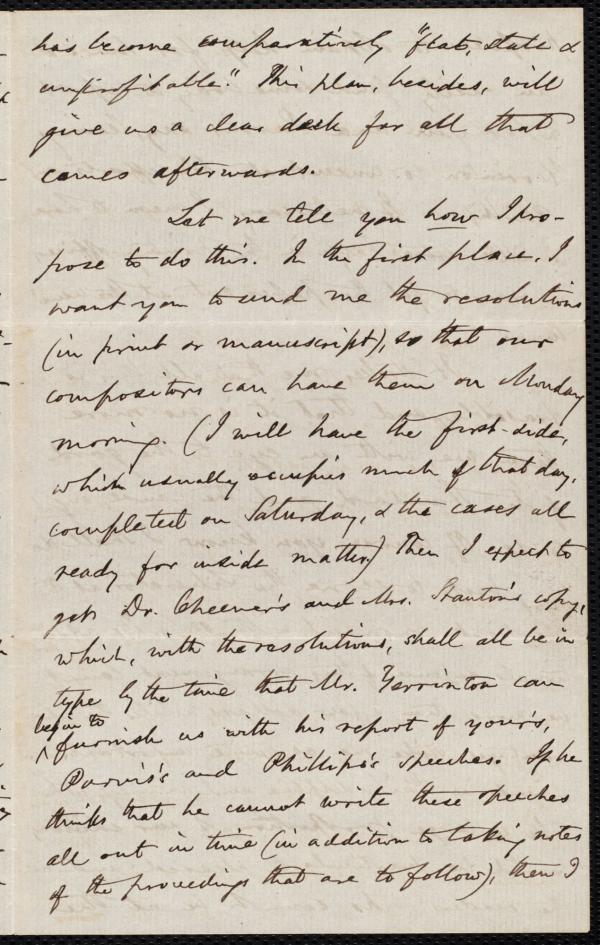 has become comparatively "flat, stale &
unprofitable." This plan, besides, will
give us a clear desk for all that
comes afterwards.
Let me tell you how I pro-
pose to do this. In the first place, I
want you to send me the resolutions
(in print or manuscript), so that our
compositors can have them on Monday
morning. (I will have the first-side,
which usually occupies much of that day,
completed on Saturday, & the cases all
ready for inside matter.) Then I expect to
get Dr. Cheever's and Mrs. Stanton's copy,
which, with the resolutions, shall all be in
type by the time that Mr. Yerrinton can
begin to
^ furnish us with his report of yours,
Purvis's and Phillips's speeches. If he
thinks that he cannot write these speeches
all out in time (in addition to taking notes
of the proceedings that are to follow), then I